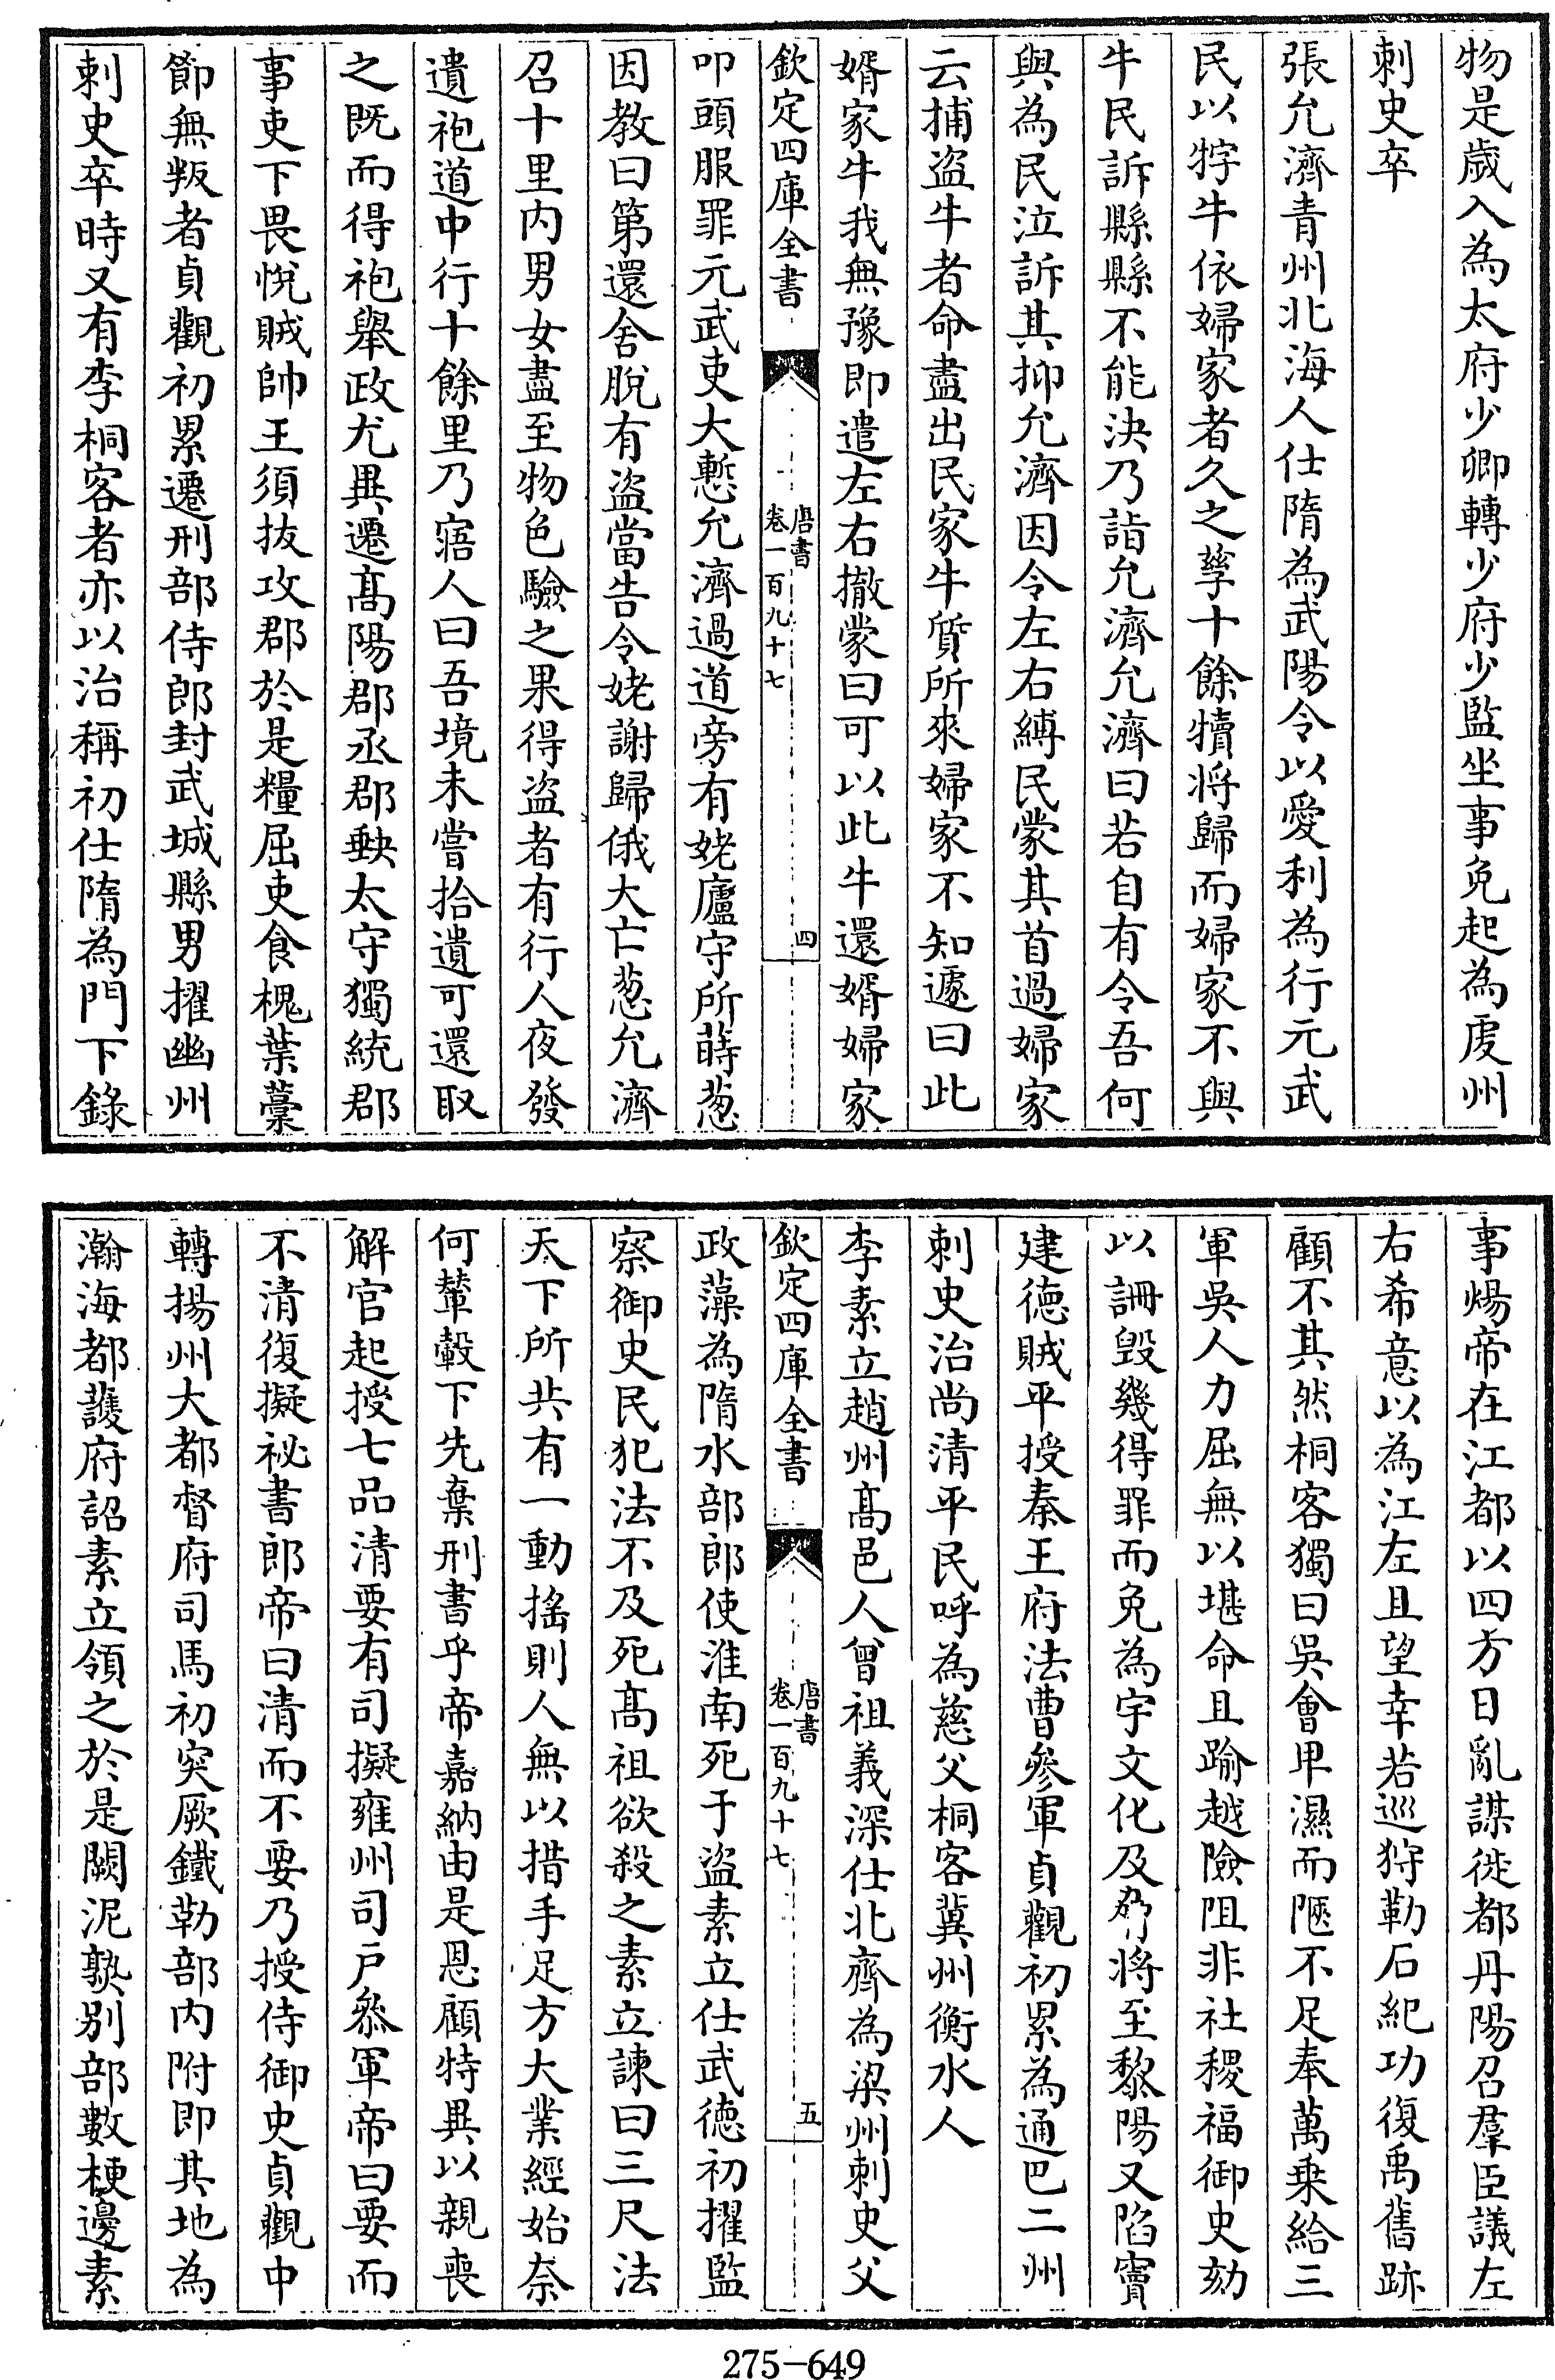 物是歲入為太府少卿轉少府少監坐事免起為䖍州
刺史卒
張允濟青州北海人仕隋為武陽令以愛利為行元武
民以牸牛依婦家者久之孳十餘犢將歸而婦家不與
牛民訴縣縣不能決乃詣允濟允濟曰若自有令吾何
與為民泣訴其抑允濟因令左右縛民蒙其首過婦家
云捕盜牛者命盡出民家牛質所來婦家不知遽曰此
壻家牛我無豫即遣左右撤蒙曰可以此牛還壻婦家
欽定四庫全書
唐書
卷一百九十七
四
叩頭服罪元武吏大慙允濟過道旁有姥廬守所蒔葱
因教曰第還舍脫有盜當告令姥謝歸俄大亡葱允濟
召十里內男女盡至物色驗之果得盜者有行人夜發
遺袍道中行十餘里乃寤人曰吾境未嘗拾遺可還取
之既而得袍舉政尤異遷高陽郡丞郡缺太守獨統郡
事吏下畏悅賊帥王須拔攻郡於是糧屈吏食槐葉藁
節無叛者貞觀初累遷刑部侍郎封武城縣男擢幽州
刺史卒時又有李桐客者亦以治稱初仕隋為門下錄
事煬帝在江都以四方日亂謀徙都丹陽召羣臣議左
右希意以為江左且望幸若巡狩勒石紀功復禹舊跡
顧不其然桐客獨曰吳會卑濕而陿不足奉萬乘給三
軍吳人力屈無以堪命且踰越險阻非社稷福御史劾
以訕毀幾得罪而免為宇文化及脅將至黎陽又陷竇
建德賊平授秦王府法曹參軍貞觀初累為通巴二州
刺史治尚清平民呼為慈父桐客冀州衡水人
李素立趙州高邑人曾祖義深仕北齊為梁州刺史父
欽定四庫全書
唐書
卷一百九十七
五
政藻為隋水部郎使淮南死于盜素立仕武德初擢監
察御史民犯法不及死高祖欲殺之素立諫曰三尺法
天下所共有一動搖則人無以措手足方大業經始奈
何輦轂下先棄刑書乎帝嘉納由是恩顧特異以親喪
解官起授七品清要有司擬雍州司戶叅軍帝曰要而
不清復擬祕書郎帝曰清而不要乃授侍御史貞觀中
轉揚州大都督府司馬初突厥鐵勒部內附即其地為
瀚海都護府詔素立領之於是闕泥孰别部數梗邊素
275-649